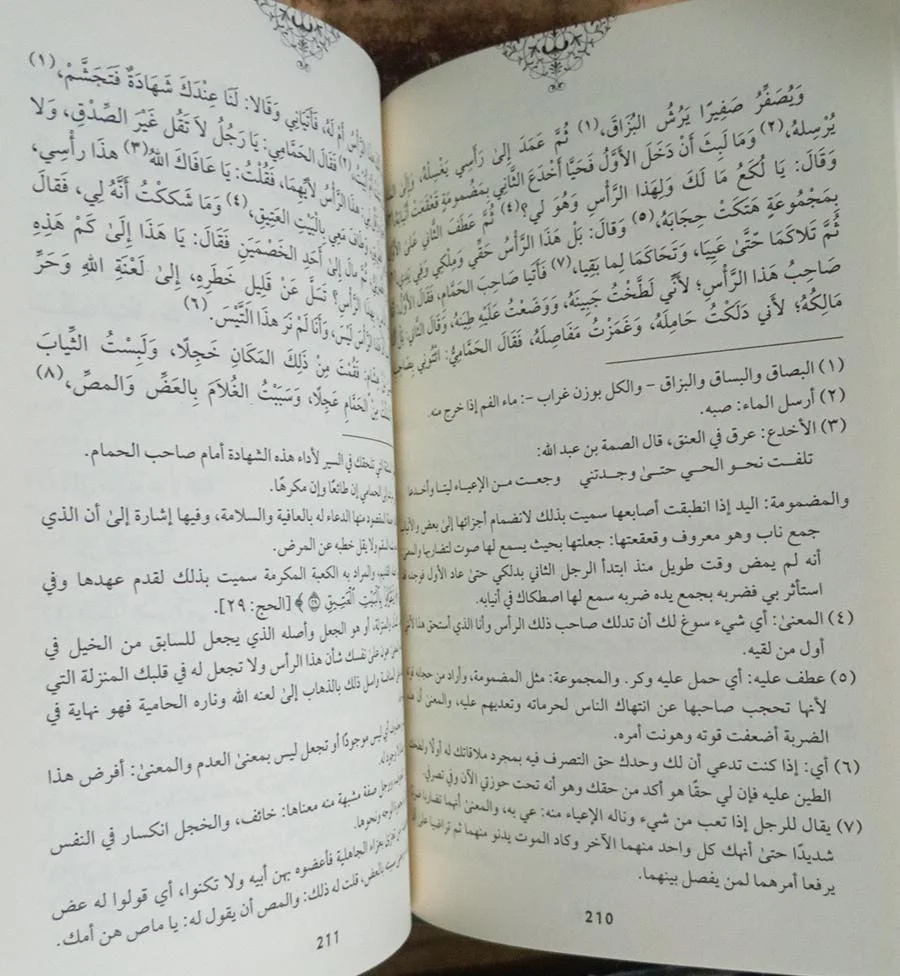 وَيُصَفِّرُ صَفِيرًا يَرُشُّ البُزَاقَ،(١) ثُمَّ عَمَدَ إِلَى رَأْسِي يَغْسِلُهُ، وَإِلَى
يُرْسِلُهُ،(٢) وَمَا لَبِثَ أَنْ دَخَلَ الأَوَّلُ فَحَيَّا أَخْدَعَ الثَّانِي بِمَضْمُومَةٍ قَعْقَعَتْ
وَقَالَ: يَا لُكَعُ مَا لَكَ وَلِهَذَا الرَّأْسِ وَهُوَ لِي؟(٤) ثُمَّ عَطَفَ الثَّانِي عَلَى
بِمَجْمُوعَةٍ هَتَكَتْ حِجَابَهُ،(٥) وَقَالَ: بَلْ هَذَا الرَّأْسُ حَقِّي وَمِلْكِي وَفِي
ثُمَّ تَلَاكَمَا حَتَّى عَيِيَا، وَتَحَاكَمَا لِمَا بَقِيَا،(٧) فَأَتَيَا صَاحِبَ الحَمَّامِ، فَقَالَ
صَاحِبُ هَذَا الرَّأْسِ؛ لأَنِّي لَطَّخْتُ جَبِينَهُ، وَوَضَعْتُ عَلَيْهِ طِينَهُ، وَقَالَ الثَّانِي:
مَالِكُهُ؛ لأَنِّي دَلَكْتُ حَامِلَهُ، وَغَمَزْتُ مَفَاصِلَهُ، فَقَالَ الحَمَّامِيُّ: ائْتُونِي
(١) البصاق والبساق والبزاق - والكل بوزن غراب -: ماء الفم إذا خرج منه.
(٢) أرسل الماء: صبه.
(٣) الأخدع: عرق في العنق، قال الصمة بن عبد الله:
تلفت نحو الحي حتىٰ وجدتني وجعت من الإعياء ليتا وأخدعا
والمضمومة: اليد إذا انطبقت أصابعها سميت بذلك لانضمام أجزائها إلى بعض
جمع ناب وهو معروف وقعقعتها: جعلتها بحيث يسمع لها صوت لتضاربها
أنه لم يمض وقت طويل منذ ابتدأ الرجل الثاني بدلكي حتىٰ عاد الأول فوجده
استأثر بي فضربه بجمع يده ضربه سمع لها اصطكاك في أنيابه.
(٤) المعنىٰ: أي شيء سوغ لك أن تدلك صاحب ذلك الرأس وأنا الذي أستحق هذا
أول من لقيه.
(٥) عطف عليه: أي حمل عليه وكر. والمجموعة: مثل المضمومة، وأراد من حجابه
لأنها تحجب صاحبها عن انتهاك الناس لحرماته وتعديهم عليه، والمعنىٰ أن
الضربة أضعفت قوته وهونت أمره.
(٦) أي: إذا كنت تدعي أن لك وحدك حق التصرف فيه بمجرد ملاقاتك له أولًا
الطين عليه فإن لي حقًا هو أكد من حقك وهو أنه تحت حوزتي الآن وفي تصرفي.
(٧) يقال للرجل إذا تعب من شيء وناله الإعياء منه: عي به، والمعنىٰ أنهما تضاربا
شديدًا حتىٰ أنهك كل واحد منهما الآخر وكاد الموت يدنو منهما ثم تراضيا علىٰ أن
يرفعا أمرهما لمن يفصل بينهما.
210
الرَّأْسِ أَمْ لَهُ، فَأَتَيَانِي وَقَالَا: لَنَا عِنْدَكَ شَهَادَةٌ فَتَجَشَّمْ،(١)
(٢) فَقَالَ الحَمَّامِي: يَا رَجُلُ لَا تَقُلْ غَيْرَ الصِّدْقِ، وَلَا
هَذَا الرَّأْسُ لأَيِّهِمَا، فَقُلْتُ: يَا عَافَاكَ اللهُ(٣) هَذَا رَأْسِي،
وَطَافَ مَعِي بِالْبَيْتِ العَتِيقِ،(٤) وَمَا شَكَكْتُ أَنَّهُ لِي، فَقَالَ
ثُمَّ مَالَ إِلَى أَحَدِ الخَصْمَيْنِ فَقَالَ: يَا هَذَا إِلَى كَمْ هَذِهِ
الرَّأْسِ؟ تَسَلَّ عَنْ قَلِيلِ خَطَرِهِ، إِلَى لَعْنَةِ اللهِ وَحَرِّ
هَذَا الرَّأْسَ لَيْسَ، وَأَنَا لَمْ نَرَ هذَا التَّيْسَ.(٦)
فَقُمْتُ مِنْ ذَلِكَ المَكَانِ خَجِلًا، وَلَبِسْتُ الثِّيابَ
الحَمَّامِ عَجِلًا، وَسَبَبْتُ الغُلَامَ بِالعَضِّ وَالمصِّ،(٨)
في السير لأداء هذه الشهادة أمام صاحب الحمام.
الحمامي إن طائعًا وإن مكرهًا.
المقصود منها الدعاء له بالعافية والسلامة، وفيها إشارة إلىٰ أن الذي
ولا يقل خطبه عن المرض.
والمراد به الكعبة المكرمة سميت بذلك لقدم عهدها وفي
بِالْبَيْتِ الْعَتِيقِ ﴾ [الحج: ٢٩].
أو هو الجعل وأصله الذي يجعل للسابق من الخيل في
علىٰ نفسك شأن هذا الرأس ولا تجعل له في قلبك المنزلة التي
واسل ذلك بالذهاب إلىٰ لعنه الله وناره الحامية فهو نهاية في
أي ليس موجودًا أو تجعل ليس بمعنىٰ العدم والمعنىٰ: أفرض هذا
صفة مشبهة منه معناها: خائف، والخجل انكسار في النفس
ونحوها.
بعزاء الجاهلية فأعضوه بهن أبيه ولا تكنوا، أي قولوا له عض
بالعض، قلت له ذلك: والمص أن يقول له: يا ماص هن أمك.
211